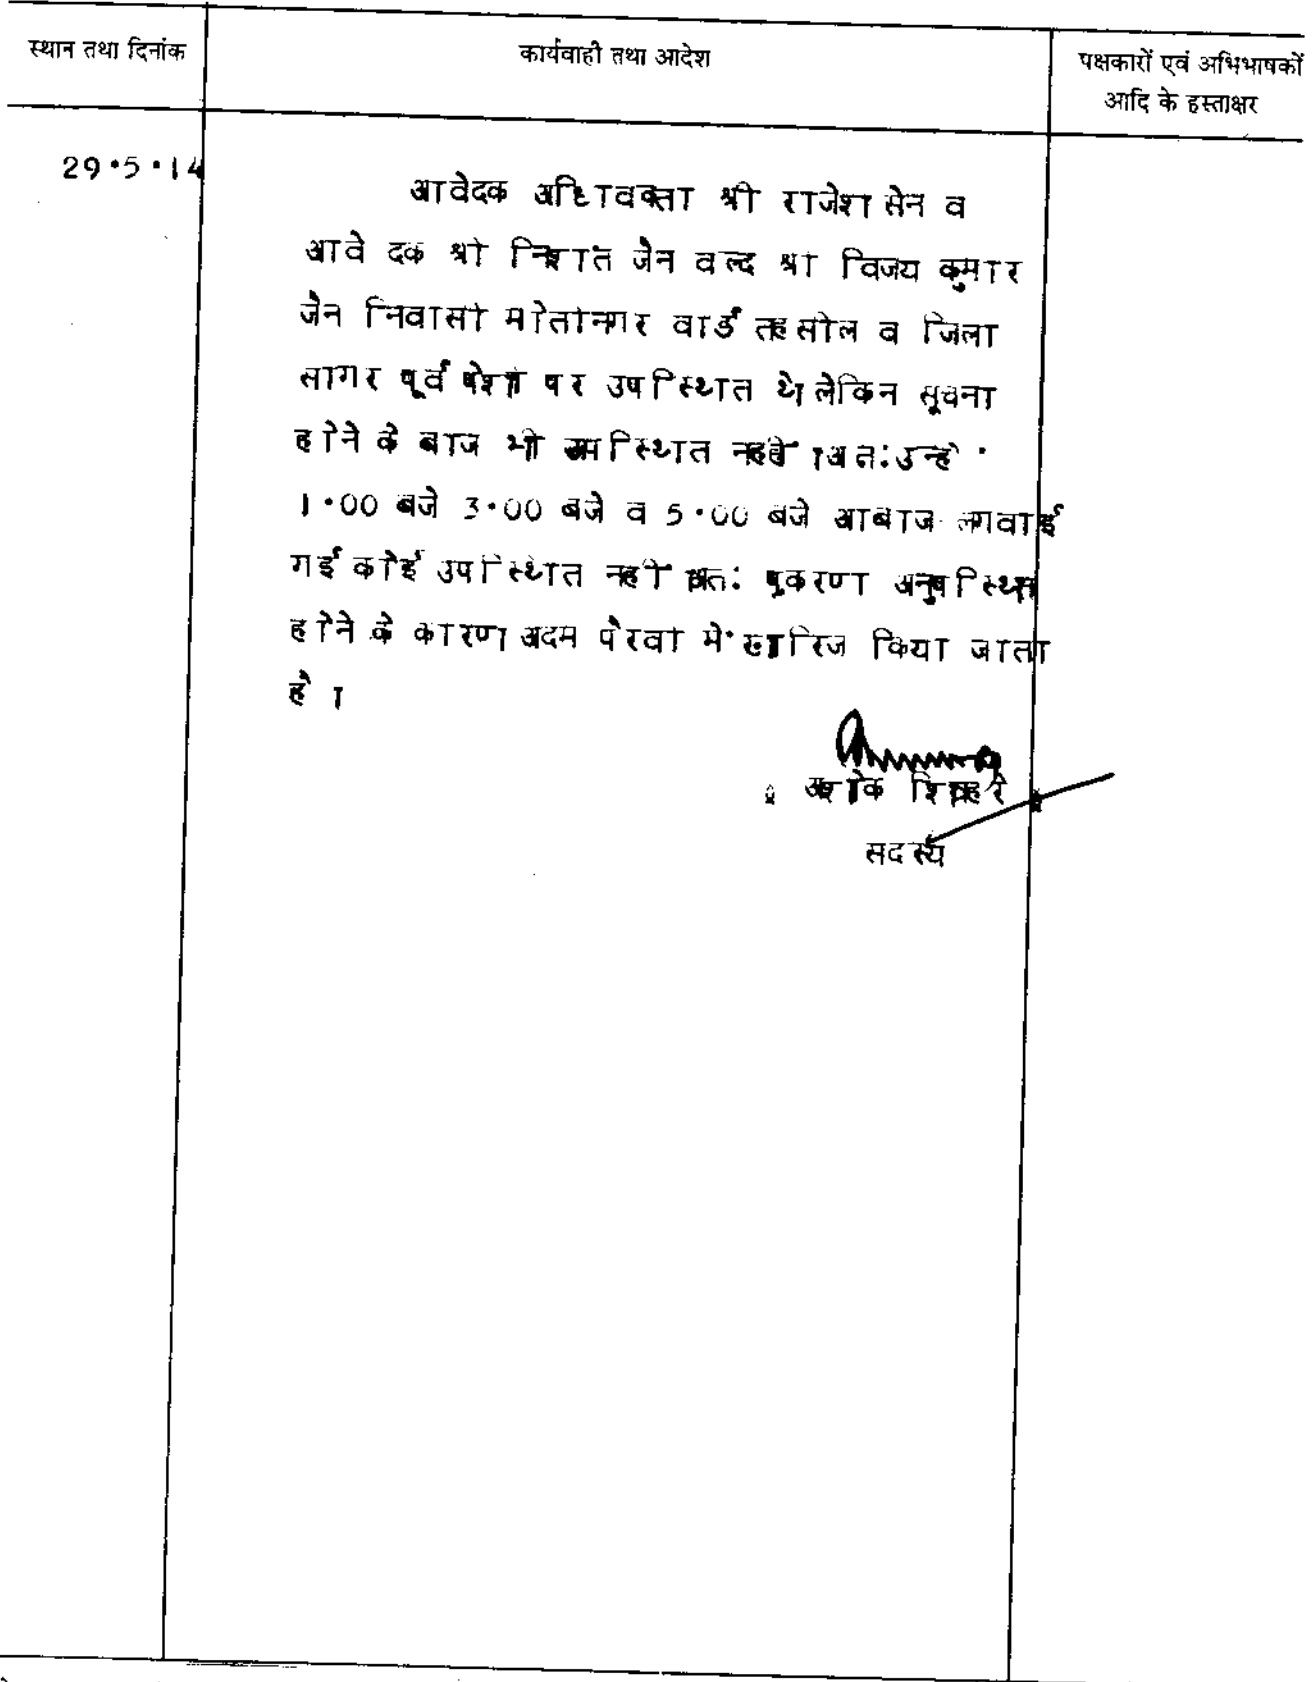 स्थान तथा दिनांक
कार्यवाही तथा आदेश
पक्षकारों एवं अभिभाषकों
आदि के हस्ताक्षर
29.5.14
आवेदक अधिवक्ता श्री राजेश सेन व
आवेदक श्री निशांत जैन वल्द श्री विजय कुमार
जैन निवासी मोतीनगर वार्ड तहसील व जिला
सागर पूर्व पेशी पर उपस्थित थे। लेकिन सूचना
होने के बाज भी उपस्थित नहीं ।अत:उन्हें
1.00 बजे 3.00 बजे व 5.00 बजे आबाज लगवाई
गई कोई उपस्थित नहीं अत: प्रकरण अनुपस्थित
होने के कारण अदम पैरवी में खारिज किया जाता
है ।
अशोक शिवहरे
सदस्य